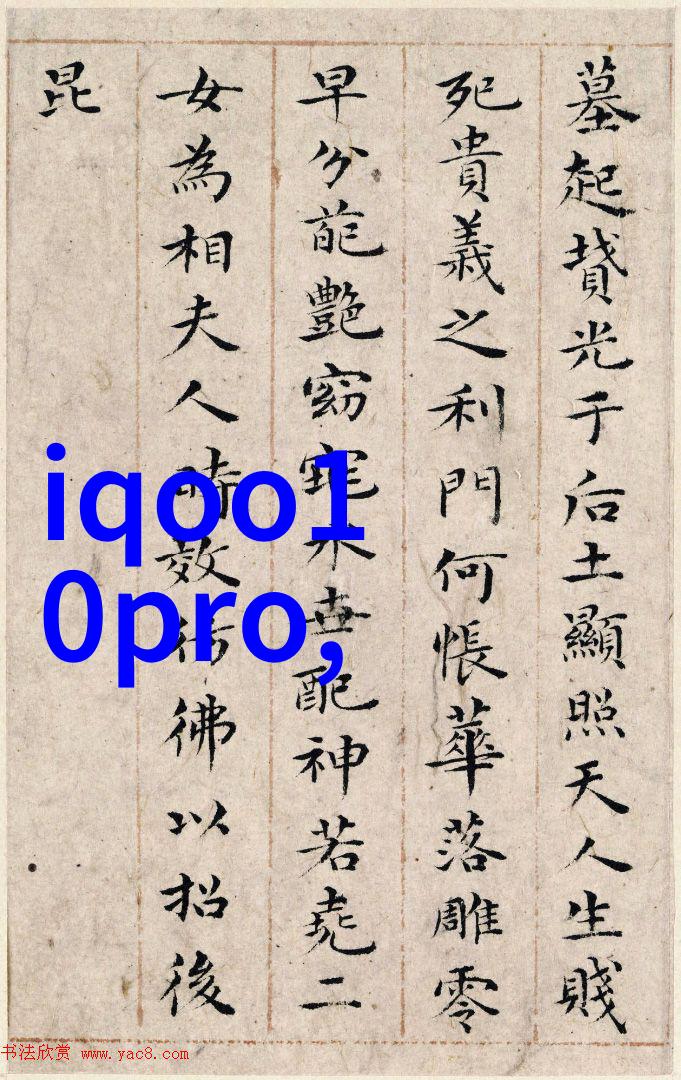 墓起墳光于后土顯照天人生賤
死貴義之利門何悵華落雕零
早分葩艷窈窕永世配神若堯二
女為相夫人時效彷彿以招後
昆
iqoo1
0pro,
书法欣赏 www.yac8.com